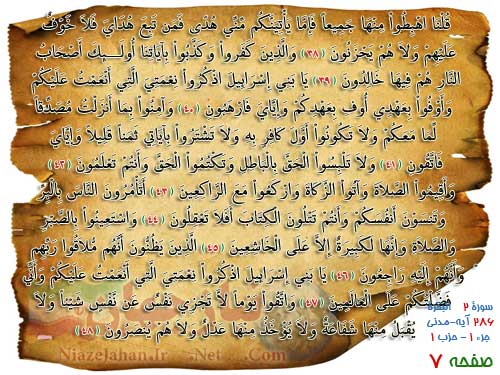 قُلْنَا اهْبِطُواْ مِنْهَا جَمِيعاً فَإِمَّا يَأْتِيَنَّكُم مِّنِّي هُدًى فَمَن تَبِعَ هُدَايَ فَلاَ خَوْفٌ
عَلَيْهِمْ وَلاَ هُمْ يَحْزَنُونَ (٣٨) وَالَّذِينَ كَفَرواْ وَكَذَّبُواْ بِآيَاتِنَا أُولَـئِكَ أَصْحَابُ
النَّارِ هُمْ فِيهَا خَالِدُونَ (٣٩) يَا بَنِي إِسْرَائِيلَ اذْكُرُواْ نِعْمَتِيَ الَّتِي أَنْعَمْتُ عَلَيْكُمْ
وَأَوْفُواْ بِعَهْدِي أُوفِ بِعَهْدِكُمْ وَإِيَّايَ فَارْهَبُونِ (٤٠) وَآمِنُواْ بِمَا أَنزَلْتُ مُصَدِّقاً
لِّمَا مَعَكُمْ وَلاَ تَكُونُواْ أَوَّلَ كَافِرٍ بِهِ وَلاَ تَشْتَرُواْ بِآيَاتِي ثَمَناً قَلِيلاً وَإِيَّايَ
فَاتَّقُونِ (٤١) وَلاَ تَلْبِسُواْ الْحَقَّ بِالْبَاطِلِ وَتَكْتُمُواْ الْحَقَّ وَأَنتُمْ تَعْلَمُونَ (٤٢)
وَأَقِيمُواْ الصَّلاَةَ وَآتُواْ الزَّكَاةَ وَارْكَعُواْ مَعَ الرَّاكِعِينَ (٤٣) أَتَأْمُرُونَ النَّاسَ بِالْبِرِّ
وَتَنسَوْنَ أَنفُسَكُمْ وَأَنتُمْ تَتْلُونَ الْكِتَابَ أَفَلاَ تَعْقِلُونَ (٤٤) وَاسْتَعِينُواْ بِالصَّبْرِ
وَالصَّلاَةِ وَإِنَّهَا لَكَبِيرَةٌ إِلاَّ عَلَى الْخَاشِعِينَ (٤٥) الَّذِينَ يَظُنُّونَ أَنَّهُم مُّلاَقُوا رَبِّهِمْ
وَأَنَّهُمْ إِلَيْهِ رَاجِعُونَ (٤٦) يَا بَنِي إِسْرَائِيلَ اذْكُرُواْ نِعْمَتِيَ الَّتِي أَنْعَمْتُ عَلَيْكُمْ وَأَنِّي
فَضَّلْتُكُمْ عَلَى الْعَالَمِينَ (٤٧) وَاتَّقُواْ يَوْماً لاَّ تَجْزِي نَفْسٌ عَن نَّفْسٍ شَيْئاً وَلاَ
يُقْبَلُ مِنْهَا شَفَاعَةٌ وَلاَ يُؤْخَذُ مِنْهَا عَدْلٌ وَلاَ هُمْ يُنصَرُونَ (٤٨)
سورة ۲ البقرة
۲۸۶ آیه-مدنی
جزء ۱ - حزب ۱
صفحه ۷
NiazeJahan.Ir .Net .Com